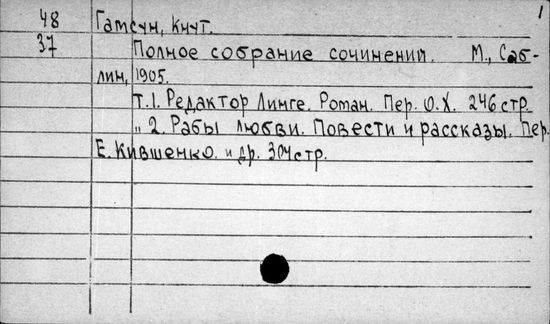 1
48 Гамсун, Кнут.
37 Полное собрание сочинений. М., Саб-
лин, 1905.
Т.1. Редактор Линге. Роман. Пер. О.Х. 246 стр.
„ 2. Рабы любви. Повести и рассказы. Пер.
Е. Кившенко. и др. 304 стр.